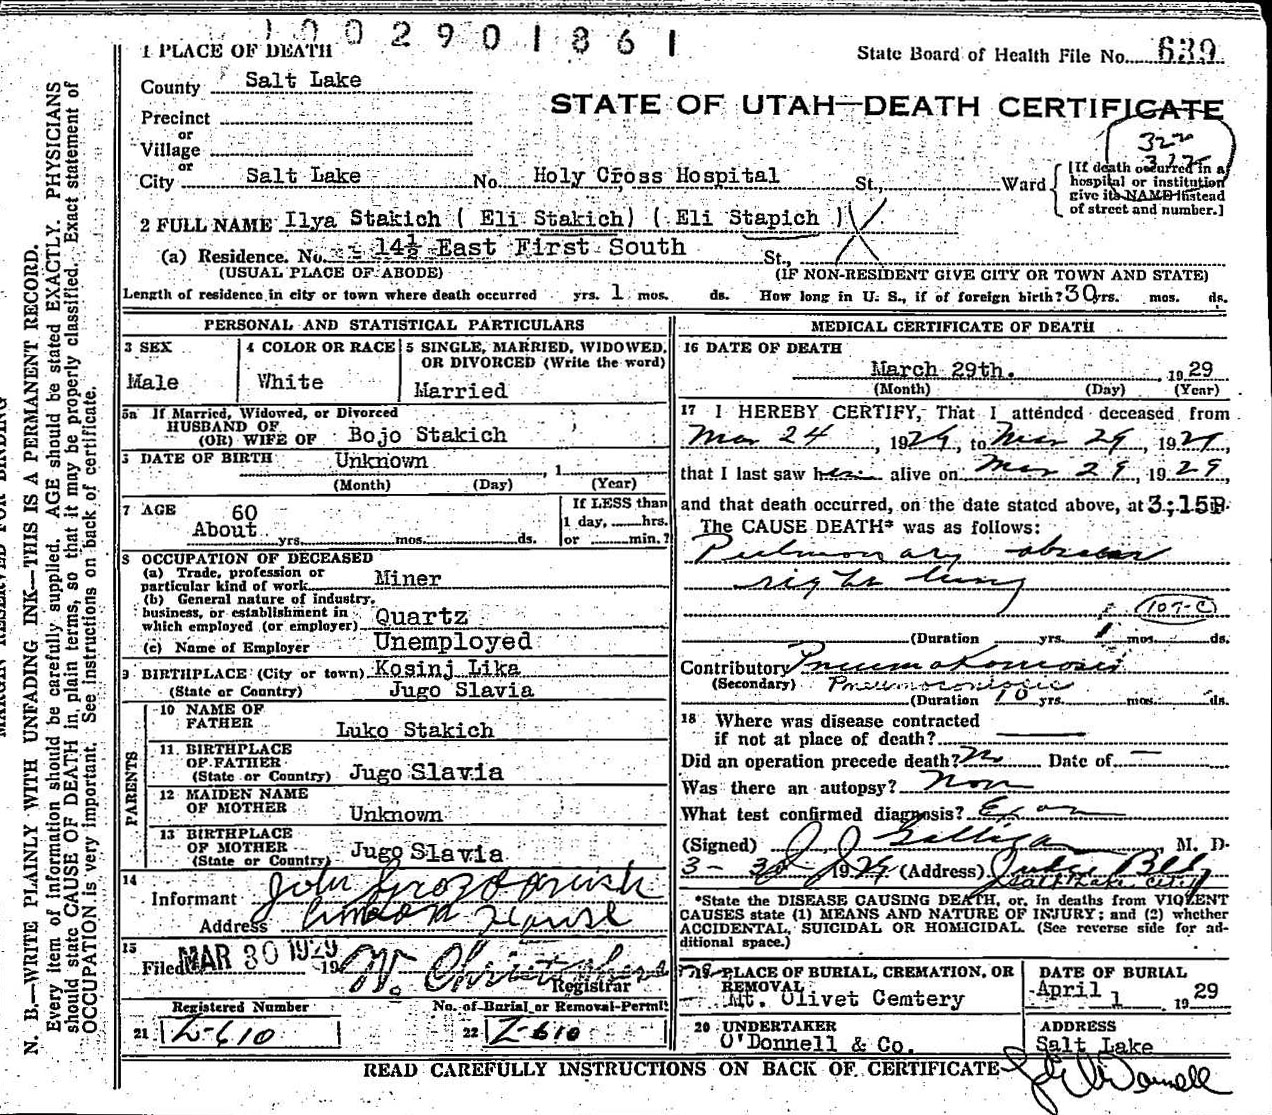 1002901861
1 PLACE OF DEATH
State Board of Health File No. 639
County Salt Lake
STATE OF UTAH—DEATH CERTIFICATE
Precinct
or
Village
or
322
City Salt Lake No. Holy Cross Hospital St., Ward
[If death occurred in a
hospital or institution
give its NAME instead
of street and number.]
2 FULL NAME Ilya Stakich ( Eli Stakich) ( Eli Stapich )
(a) Residence. No. 14½ East First South St.,
(USUAL PLACE OF ABODE) (IF NON-RESIDENT GIVE CITY OR TOWN AND STATE)
Length of residence in city or town where death occurred yrs. 1 mos. ds. How long in U. S., if of foreign birth? 30 yrs. mos. ds.
PERSONAL AND STATISTICAL PARTICULARS
3 SEX
Male
4 COLOR OR RACE
White
5 SINGLE, MARRIED, WIDOWED,
OR DIVORCED (Write the word)
Married
5a If Married, Widowed, or Divorced
HUSBAND OF
(OR) WIFE OF Bojo Stakich
DATE OF BIRTH Unknown , 1
(Month) (Day) (Year)
7 AGE 60
About yrs. mos. ds.
If LESS than
1 day, hrs.
or min.?
8 OCCUPATION OF DECEASED
(a) Trade, profession or
particular kind of work Miner
(b) General nature of industry,
business, or establishment in
which employed (or employer) Quartz
(c) Name of Employer Unemployed
9 BIRTHPLACE (City or town) Kosinj Lika
(State or Country) Jugo Slavia
PARENTS
10 NAME OF
FATHER Luko Stakich
11 BIRTHPLACE
OF FATHER
(State or Country) Jugo Slavia
12 MAIDEN NAME
OF MOTHER Unknown
13 BIRTHPLACE
OF MOTHER
(State or Country) Jugo Slavia
14
Informant John
Address
15
Filed MAR 30 1929 19 W. Christophers
Registrar
Registered Number No. of Burial or Removal Permit
21 Z-610 22 Z-610
MEDICAL CERTIFICATE OF DEATH
16 DATE OF DEATH
March 29th. 19 29
(Month) (Day) (Year)
17 I HEREBY CERTIFY, That I attended deceased from
Mar 24, 1929, to Mar 29 1929,
that I last saw him alive on Mar 29, 1929,
and that death occurred, on the date stated above, at 3:15P.
The CAUSE DEATH* was as follows:
Pulmonary abscess
right lung
107-C
(Duration yrs. 1 mos. ds.
Contributory Pneumokoniosis
(Secondary) Pneumoconiosis
(Duration 10 yrs. mos. ds.
18 Where was disease contracted
if not at place of death?
Did an operation precede death? No Date of —
Was there an autopsy? Non
What test confirmed diagnosis? Exam
(Signed) J J Galligan M. D.
3-30 1929 (Address) Judge Bld
Salt Lake City
*State the DISEASE CAUSING DEATH, or, in deaths from VIOLENT
CAUSES state (1) MEANS AND NATURE OF INJURY; and (2) whether
ACCIDENTAL, SUICIDAL OR HOMICIDAL. (See reverse side for ad-
ditional space.)
19 PLACE OF BURIAL, CREMATION, OR
REMOVAL
Mt. Olivet Cemtery
DATE OF BURIAL
April 1 19 29
20 UNDERTAKER
O'Donnell & Co.
ADDRESS
Salt Lake
READ CAREFULLY INSTRUCTIONS ON BACK OF CERTIFICATE
MARGIN RESERVED FOR BINDING
N. B.—WRITE PLAINLY WITH UNFADING INK—THIS IS A PERMANENT RECORD.
Every item of information should be carefully supplied. AGE should be stated EXACTLY. PHYSICIANS
should state CAUSE OF DEATH in plain terms, so that it may be properly classified. Exact statement of
OCCUPATION is very important. See instructions on back of certificate.